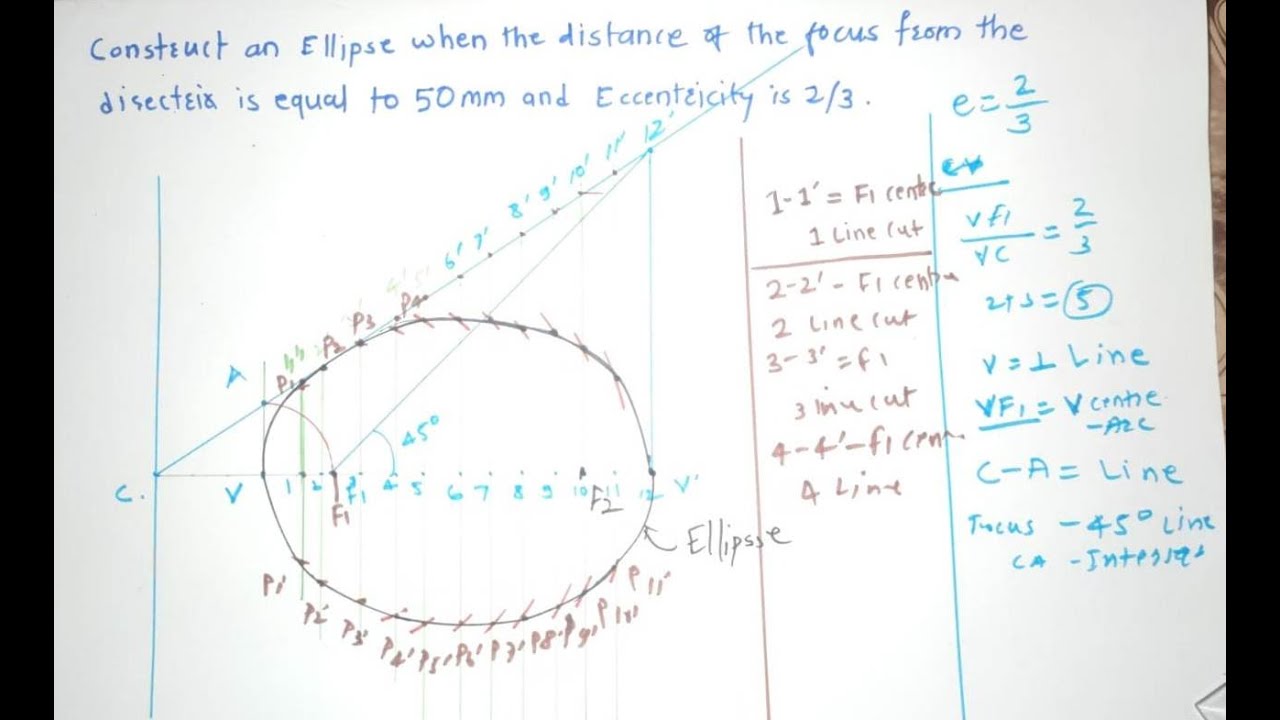 Construct an Ellipse when the distance of the focus from the
disectrix is equal to 50mm and Eccentricity is 2/3.
e = 2/3
1-1' = F1 centre
1 Line cut
VF1/VC = 2/3
2-2' - F1 centre
2 Line cut
2+3 = 5
3-3' = f1
3 line cut
V = ⊥ Line
VF1 = V centre
- Arc
4-4' - f1 cen
4 Line
C-A = Line
Focus - 45° Line
CA - Intersect
6' 7' 8' 9' 10' 11' 12'
A P1 P2 P3 P4
45°
C. V 1 2 3 4 5 6 7 8 9 10 11 12 V'
F1 F1 F2
Ellipsse
P1' P2' P3' P4' P5' P6' P7' P8' P9' P10' P11'